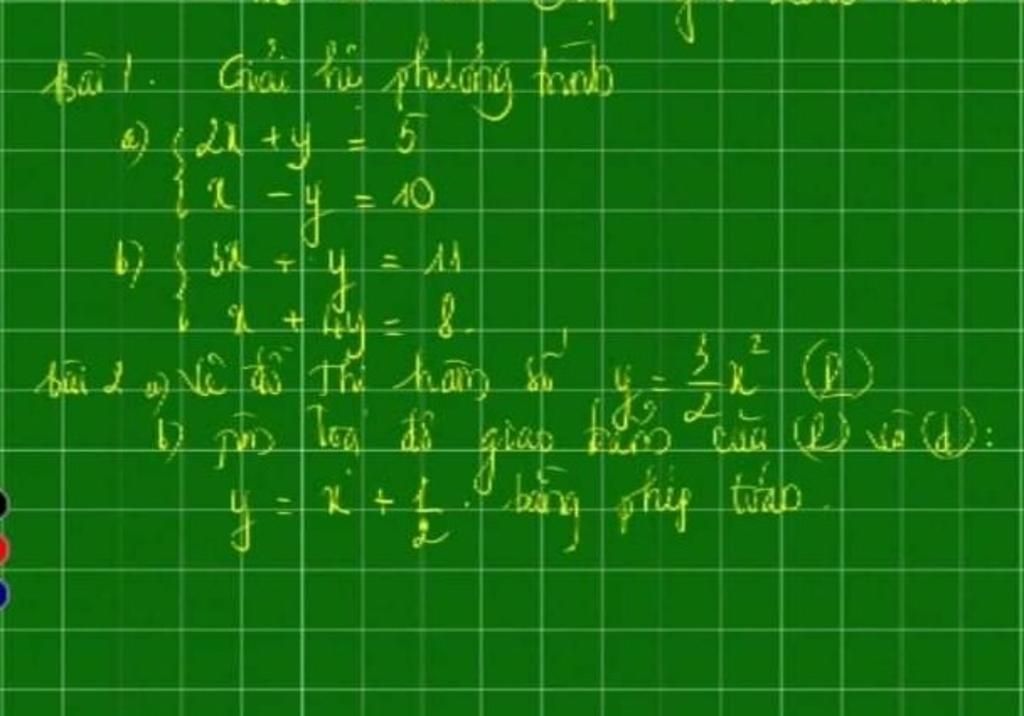 Bài 1. Giải hệ phương trình
a) { 2x + y = 5
x - y = 10
b) { 3x + y = 11
x + 4y = 8.
Bài 2 a) Vẽ đồ thị hàm số y = 3/2 x² (P)
b) tìm toạ độ giao điểm của (P) và (d):
y = x + 1/2 . bằng phép toán.